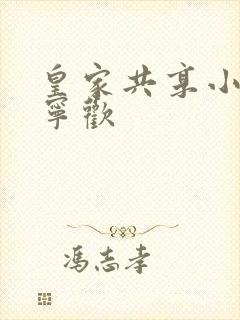 皇家共享小
寧歡
馮志孝